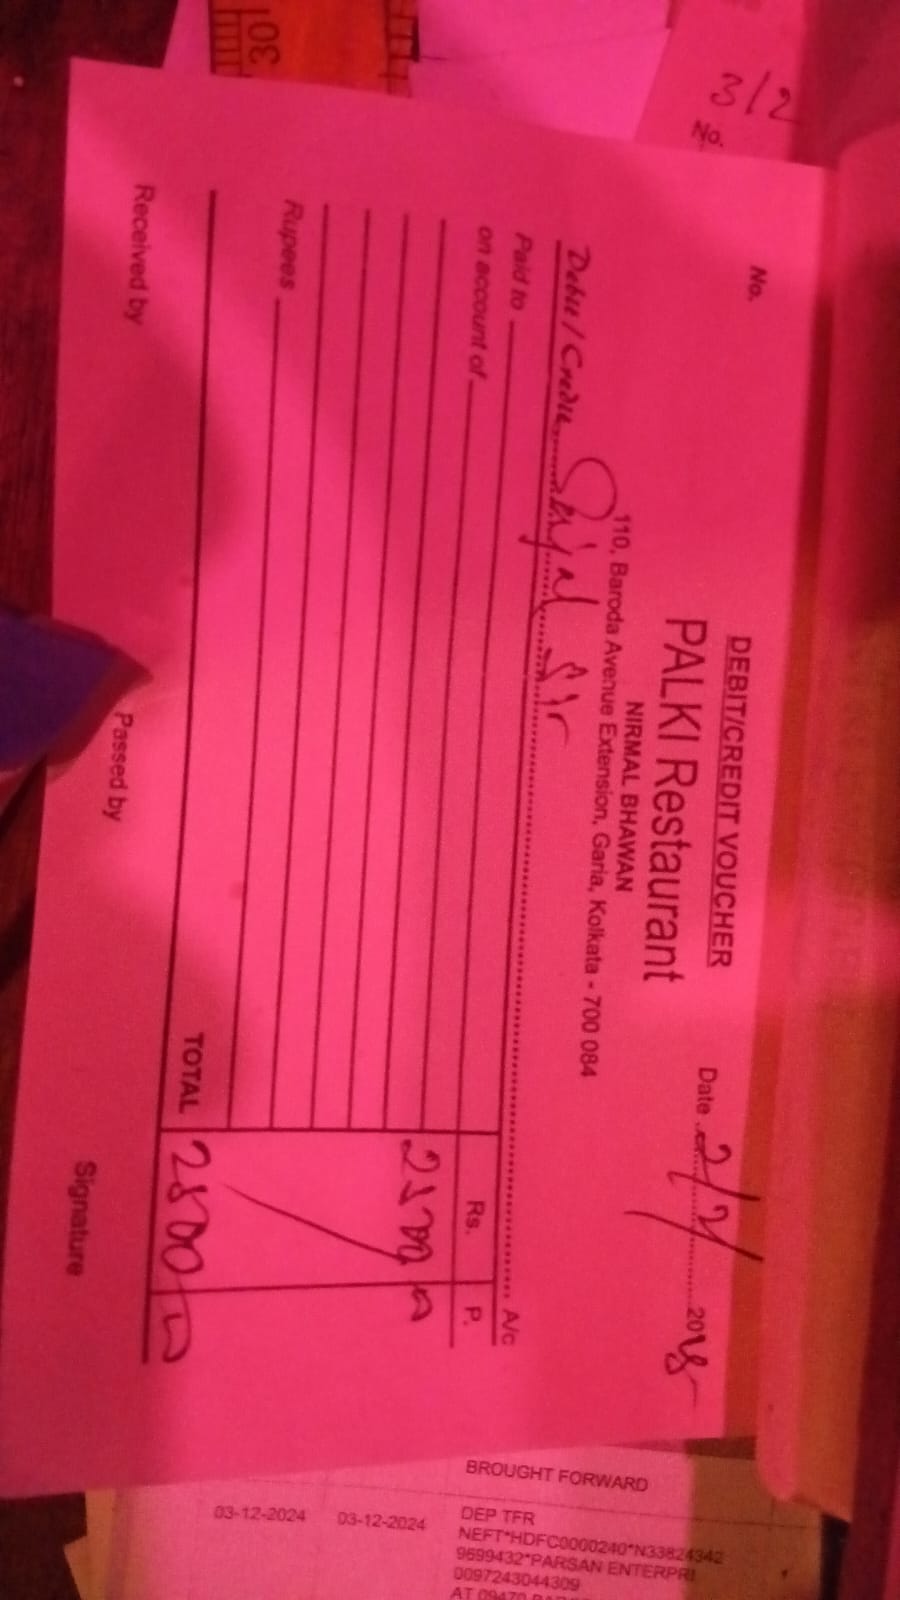 30
3/2
No.
No.
DEBIT/CREDIT VOUCHER
PALKI Restaurant
NIRMAL BHAWAN
110, Baroda Avenue Extension, Garia, Kolkata - 700 084
Date 2/2 2025
Debit / Credit Sajal Sir A/c
Paid to
on account of
Rs. P.
Rupees
TOTAL 2800
Received by Passed by Signature
BROUGHT FORWARD
03-12-2024 03-12-2024 DEP TFR
NEFT*HDFC0000240*N33824342
9699432*PARSAN ENTERPRI
0097243044309